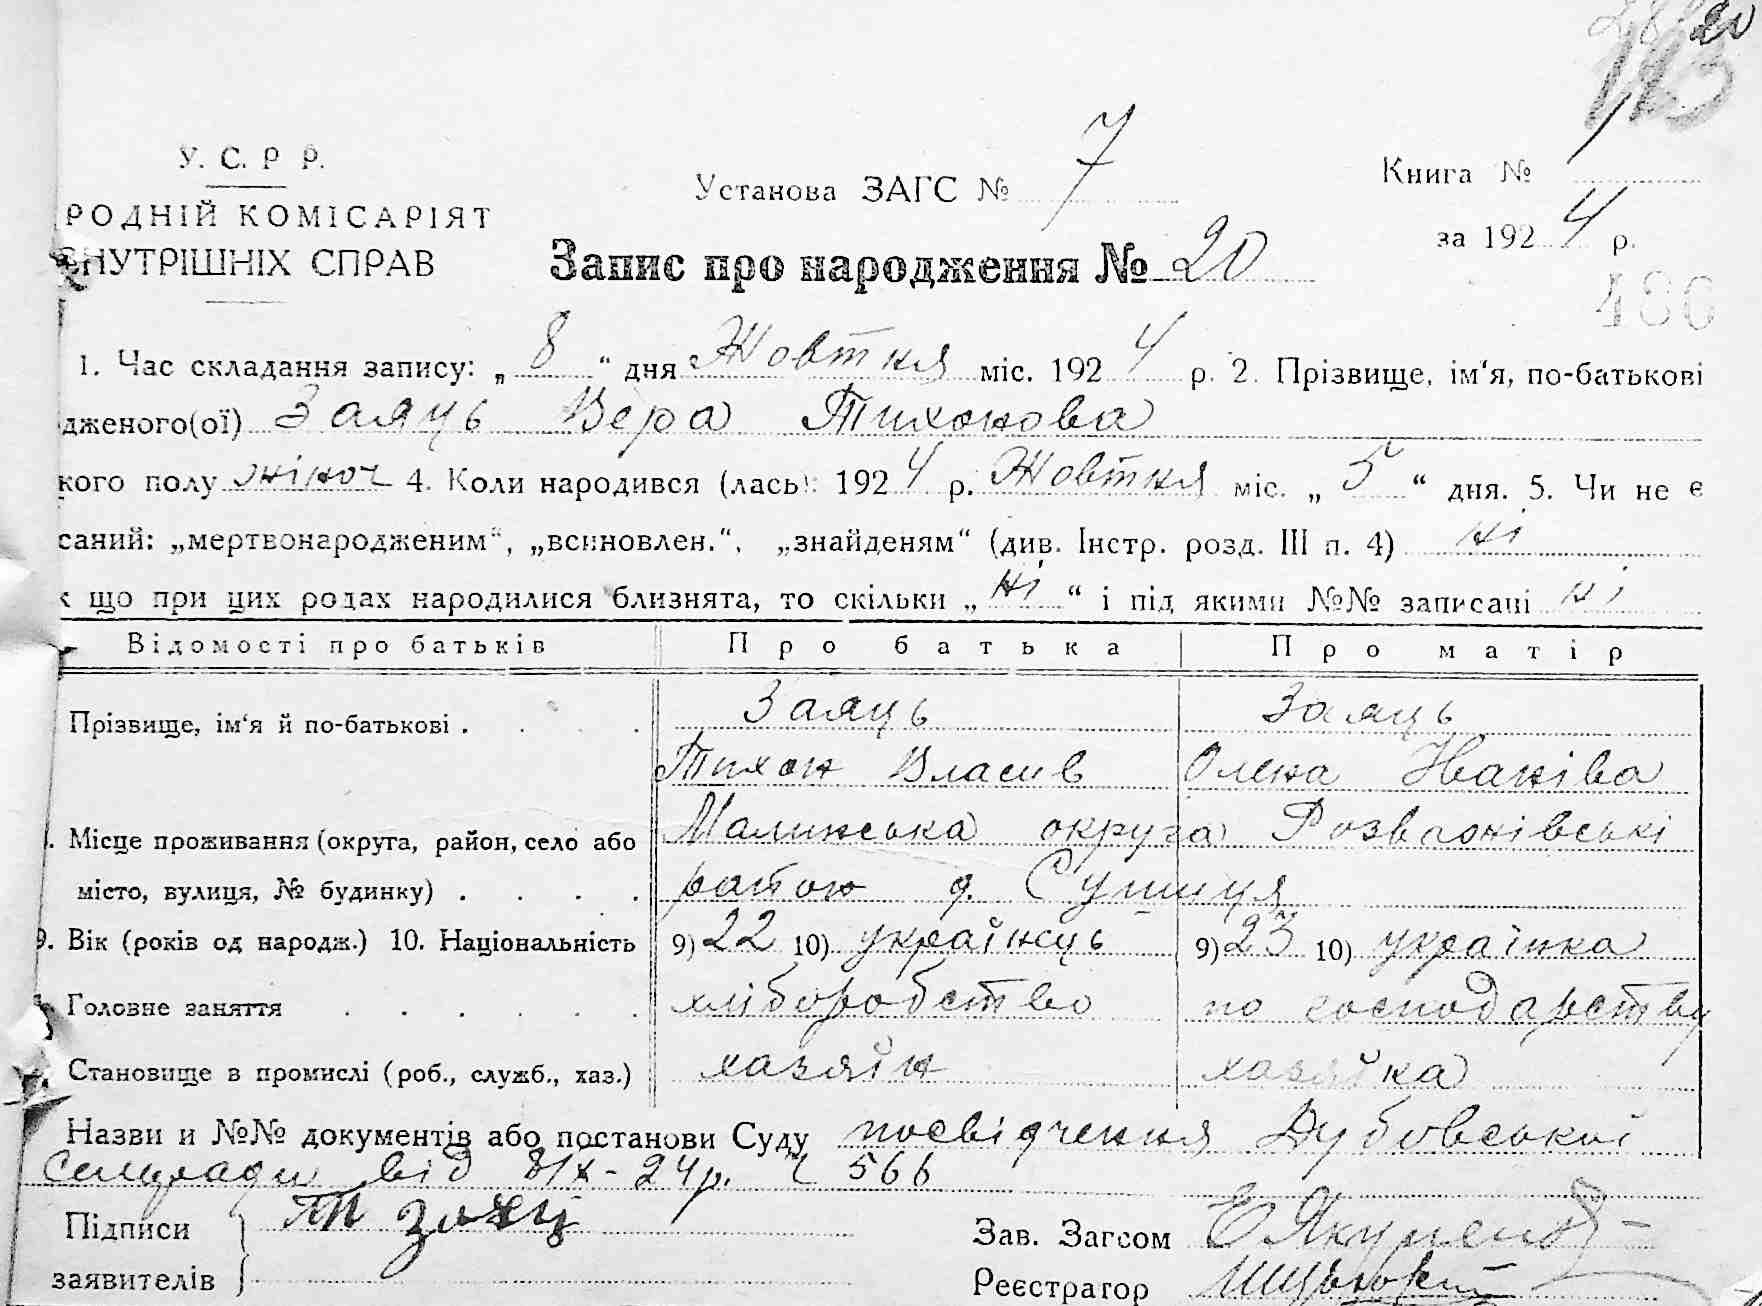 28 20
113
У. С. Р Р.
РОДНІЙ КОМІСАРІЯТ
ВНУТРІШНІХ СПРАВ
Установа ЗАГС № 7
Книга № 1
за 1924 р.
Запис про народження № 20
486
1. Час складання запису: „8“ дня Жовтня міс. 1924 р. 2. Прізвище, ім'я, по-батькові
дженого(ої) Заяць Вера Тихонова
кого полу жіноч 4. Коли народився (лась): 1924 р. Жовтня міс. „5“ дня. 5. Чи не є
саний: „мертвонародженим“, „всиновлен.“, „знайденям“ (див. Інстр. розд. III п. 4) ні
к що при цих родах народилися близнята, то скільки „ні“ і під якими №№ записані ні
Відомості про батьків Про батька Про матір
Прізвище, ім'я й по-батькові . . . . Заяць Заяць
Тихон Власив Олена Иванівa
Місце проживання (округа, район, село або Малинська округа Розважівські
місто, вулиця, № будинку) . . . . район д. Сушиця
9. Вік (років од народж.) 10. Національність 9) 22 10) українець 9) 23 10) українка
Головне заняття . . . . . . хліборобство по господарству
Становище в промислі (роб., служб., хаз.) хазяйн хазяйка
Назви и №№ документів або постанови Суду посвідчення Дубовської
Сельради від 8/X-24р. 566
Підписи Т Заяц
Зав. Загсом
заявителів
Реєстратор